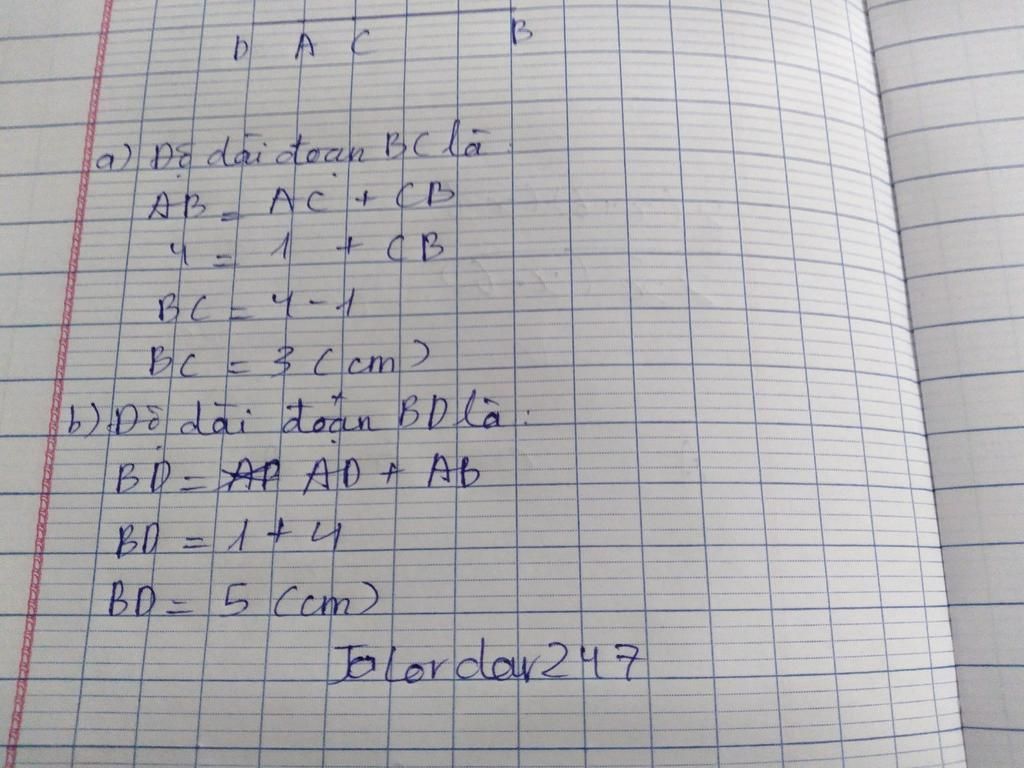 D A C B
a) Độ dài đoạn BC là
AB = AC + CB
4 = 1 + CB
BC = 4 - 1
BC = 3 (cm)
b) Độ dài đoạn BD là:
BD = AD + AB
BD = 1 + 4
BD = 5 (cm)